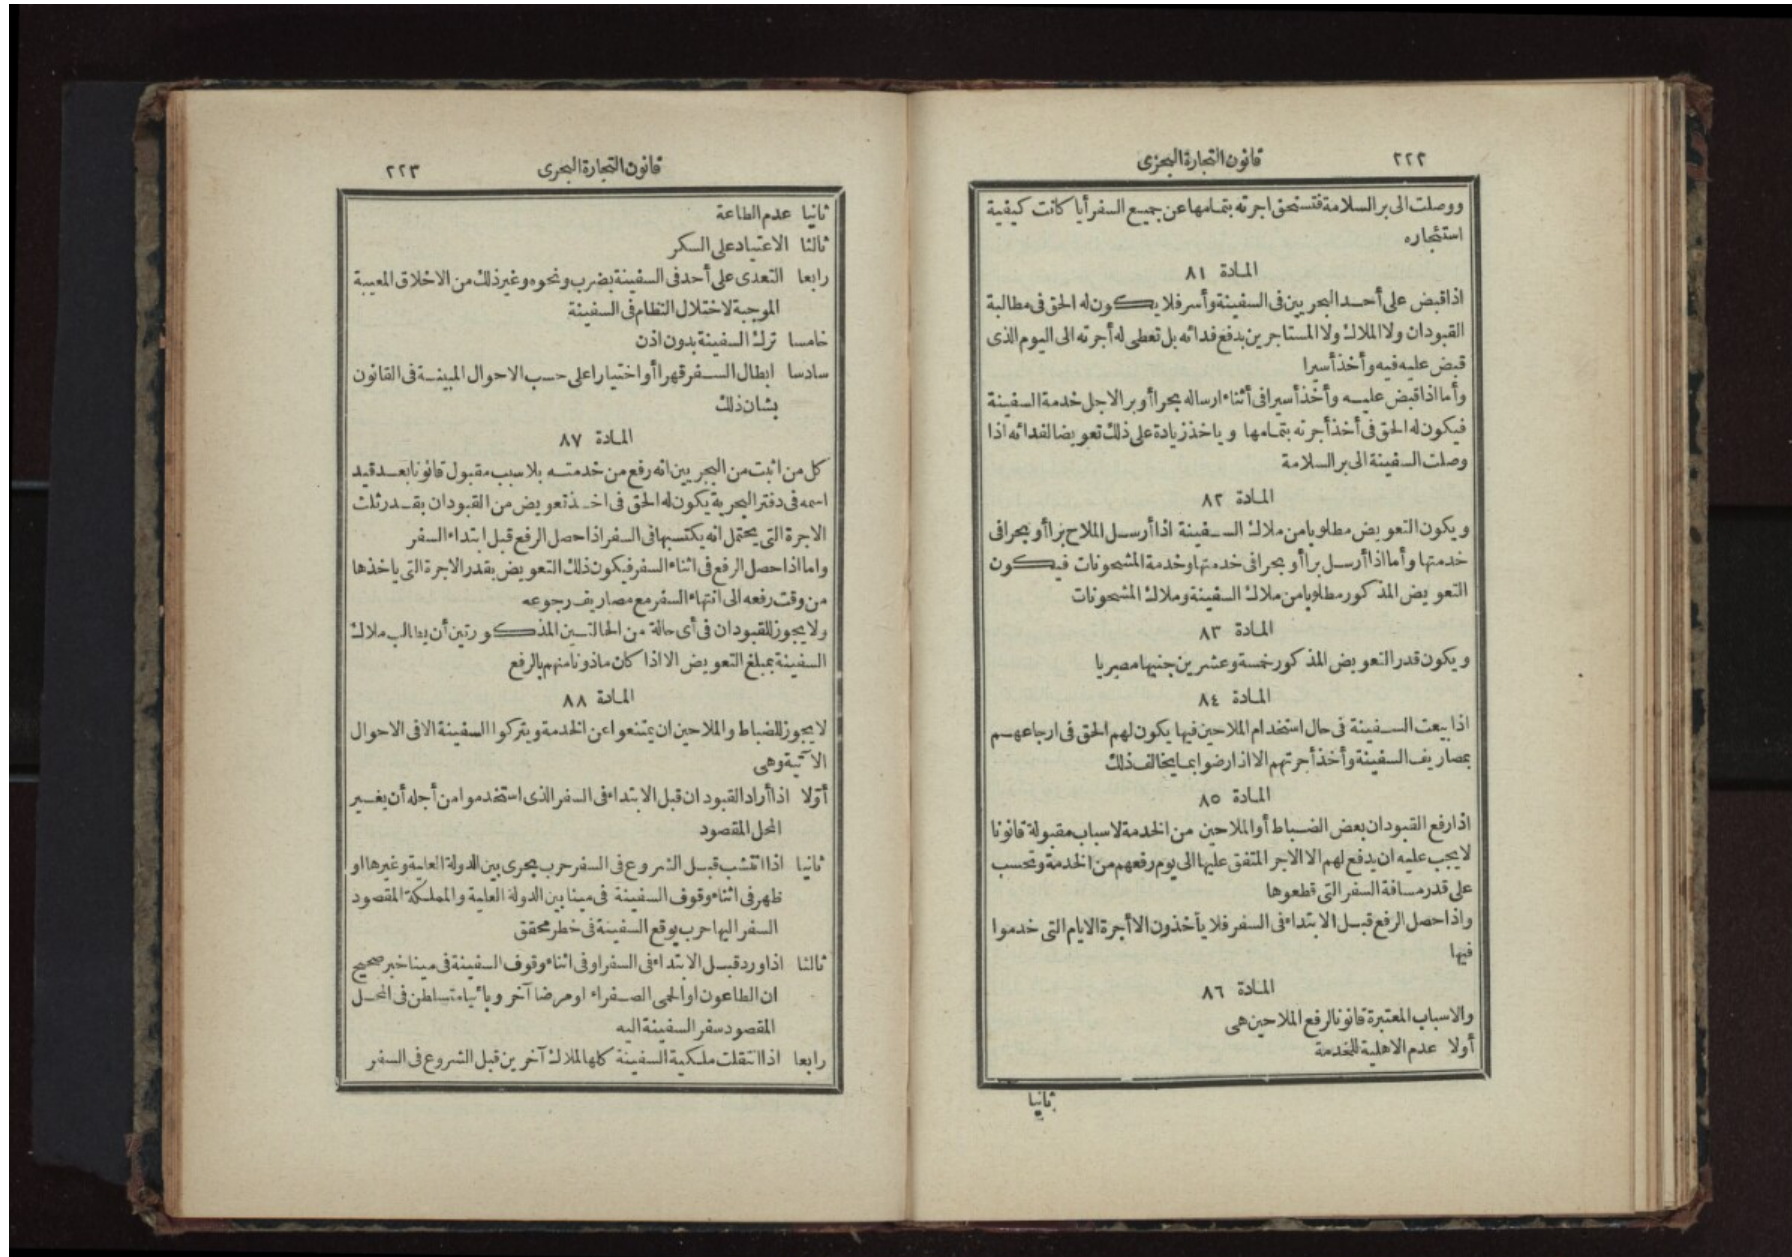 ٢٢٢
قانون التجارة البحرى
ووصلت الى بر السلامة فتستحق اجرته بتمامها عن جميع السفر أيا كانت كيفية
استئجاره
المادة ٨١
اذا قبض على أحد البحريين فى السفينة وأسر فلا يكون له الحق فى مطالبة
القبودان ولا الملاك ولا المستاجرين بدفع فدائه بل تعطى له أجرته الى اليوم الذى
قبض عليه فيه وأخذ أسيرا
وأما اذا قبض عليه وأخذ أسيرا فى أثناء ارساله بحرا أو برا لاجل خدمة السفينة
فيكون له الحق فى أخذ أجرته بتمامها وياخذ زيادة على ذلك تعويضا لفدائه اذا
وصلت السفينة الى بر السلامة
المادة ٨٢
ويكون التعويض مطلوبا من ملاك السفينة اذا أرسل الملاح برا أو بحرا فى
خدمتها وأما اذا أرسل برا أو بحرا فى خدمتها وخدمة المشحونات فيكون
التعويض المذكور مطلوبا من ملاك السفينة وملاك المشحونات
المادة ٨٣
ويكون قدر التعويض المذكور خمسة وعشرين جنيها مصريا
المادة ٨٤
اذا بيعت السفينة فى حال استخدام الملاحين فيها يكون لهم الحق فى ارجاعهم
بمصاريف السفينة وأخذ أجرتهم الا اذا رضوا بما يخالف ذلك
المادة ٨٥
اذا رفع القبودان بعض الضباط أو الملاحين من الخدمة لاسباب مقبولة قانونا
لا يجب عليه ان يدفع لهم الا الاجر المتفق عليها الى يوم رفعهم من الخدمة وتحسب
على قدر مسافة السفر التى قطعوها
واذا حصل الرفع قبل الابتداء فى السفر فلا يأخذون الا أجرة الايام التى خدموا
فيها
المادة ٨٦
والاسباب المعتبرة قانونا لرفع الملاحين هى
أولا عدم الاهلية للخدمة
ثانيا
قانون التجارة البحرى
٢٢٣
ثانيا عدم الطاعة
ثالثا الاعتياد على السكر
رابعا التعدى على أحد فى السفينة بضرب ونحوه وغير ذلك من الاخلاق المعيبة
الموجبة لاختلال النظام فى السفينة
خامسا ترك السفينة بدون اذن
سادسا ابطال السفر قهرا أو اختيارا على حسب الاحوال المبينة فى القانون
بشان ذلك
المادة ٨٧
كل من اثبت من البحريين انه رفع من خدمته بلا سبب مقبول قانونا بعد قيد
اسمه فى دفتر البحرية يكون له الحق فى اخذ تعويض من القبودان بقدر ثلث
الاجرة التى يحتمل انه يكتسبها فى السفر اذا حصل الرفع قبل ابتداء السفر
واما اذا حصل الرفع فى اثناء السفر فيكون ذلك التعويض بقدر الاجرة التى ياخذها
من وقت رفعه الى انتهاء السفر مع مصاريف رجوعه
ولا يجوز للقبودان فى أى حالة من الحالتين المذكورتين أن يطالب ملاك
السفينة بمبلغ التعويض الا اذا كان ماذونا منهم بالرفع
المادة ٨٨
لا يجوز للضباط والملاحين ان يمتنعوا عن الخدمة ويتركوا السفينة الا فى الاحوال
الآتية وهى
أوّلا اذا أراد القبودان قبل الابتداء فى السفر الذى استخدموا من أجله أن يغير
المحل المقصود
ثانيا اذا انتشب قبل الشروع فى السفر حرب بحرى بين الدولة العلية وغيرها او
ظهر فى اثناء وقوف السفينة فى مينا بين الدولة العلية والمملكة المقصود
السفر اليها حرب يوقع السفينة فى خطر محقق
ثالثا اذا ورد قبل الابتداء فى السفر او فى اثناء وقوف السفينة فى مينا خبر صحيح
ان الطاعون او الحمى الصفراء او مرضا آخر وبائيا متسلطن فى المحل
المقصود سفر السفينة اليه
رابعا اذا انتقلت ملكية السفينة كلها لملاك آخرين قبل الشروع فى السفر